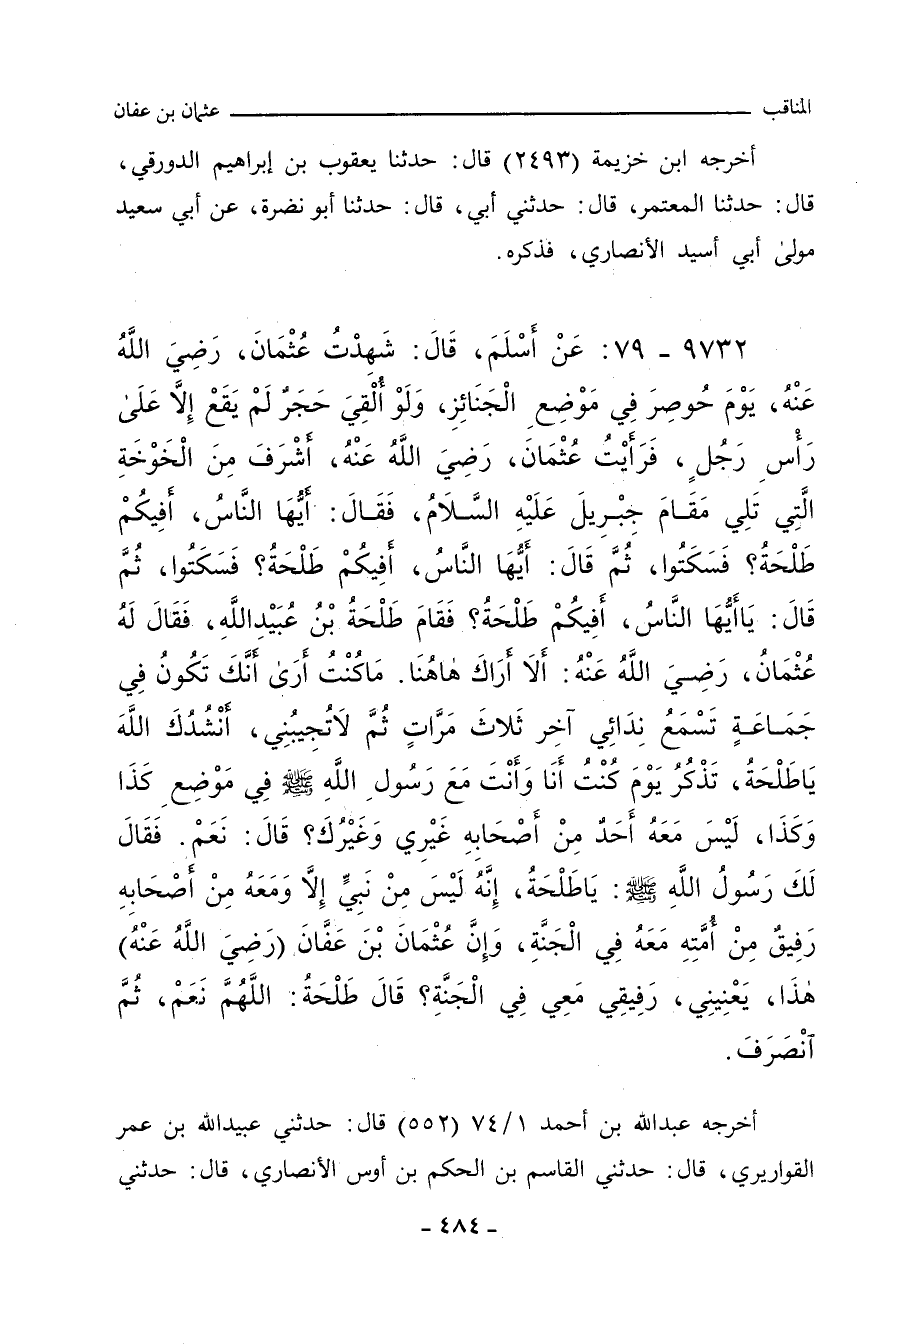 المناقب ــــــــــــــــــــــــــــ عثمان بن عفان
أخرجه ابن خزيمة (٢٤٩٣) قال: حدثنا يعقوب بن إبراهيم الدورقي،
قال: حدثنا المعتمر، قال: حدثني أبي، قال: حدثنا أبو نضرة، عن أبي سعيد
مولىٰ أبي أسيد الأنصاري، فذكره.
٩٧٣٢ ـ ٧٩: عَنْ أَسْلَمَ، قَالَ: شَهِدْتُ عُثْمَانَ، رَضِيَ اللَّهُ
عَنْهُ، يَوْمَ حُوصِرَ فِي مَوْضِعِ الْجَنَائِزِ، وَلَوْ أُلْقِيَ حَجَرٌ لَمْ يَقَعْ إِلَّا عَلَىٰ
رَأْسِ رَجُلٍ، فَرَأَيْتُ عُثْمَانَ، رَضِيَ اللَّهُ عَنْهُ، أَشْرَفَ مِنَ الْخَوْخَةِ
الَّتِي تَلِي مَقَـامَ جِبْرِيلَ عَلَيْهِ السَّـلَامُ، فَقَـالَ: أَيُّهَا النَّاسُ، أَفِيكُمْ
طَلْحَةُ؟ فَسَكَتُوا، ثُمَّ قَالَ: أَيُّهَا النَّاسُ، أَفِيكُمْ طَلْحَةُ؟ فَسَكَتُوا، ثُمَّ
قَالَ: يَاأَيُّهَا النَّاسُ، أَفِيكُمْ طَلْحَةُ؟ فَقَامَ طَلْحَةُ بْنُ عُبَيْدِاللَّهِ، فَقَالَ لَهُ
عُثْمَانُ، رَضِـيَ اللَّهُ عَنْهُ: أَلَا أَرَاكَ هٰاهُنَا. مَاكُنْتُ أَرَىٰ أَنَّكَ تَكُونُ فِي
جَمَـاعَـةٍ تَسْمَعُ نِدَائِي آخِرَ ثَلَاثَ مَرَّاتٍ ثُمَّ لَاتُجِيبُنِي، أَنْشُدُكَ اللَّهَ
يَاطَلْحَةُ، تَذْكُرُ يَوْمَ كُنْتُ أَنَا وَأَنْتَ مَعَ رَسُولِ اللَّهِ ﷺ فِي مَوْضِعِ كَذَا
وَكَذَا، لَيْسَ مَعَهُ أَحَدٌ مِنْ أَصْحَابِهِ غَيْرِي وَغَيْرُكَ؟ قَالَ: نَعَمْ. فَقَالَ
لَكَ رَسُولُ اللَّهِ ﷺ: يَاطَلْحَةُ، إِنَّهُ لَيْسَ مِنْ نَبِيٍّ إِلَّا وَمَعَهُ مِنْ أَصْحَابِهِ
رَفِيقٌ مِنْ أُمَّتِهِ مَعَهُ فِي الْجَنَّةِ، وَإِنَّ عُثْمَانَ بْنَ عَفَّانَ (رَضِيَ اللَّهُ عَنْهُ)
هٰذَا، يَعْنِينِي، رَفِيقِي مَعِي فِي الْجَنَّةِ؟ قَالَ طَلْحَةُ: اللَّهُمَّ نَعَمْ، ثُمَّ
ٱنْصَرَفَ.
أخرجه عبدالله بن أحمد ٧٤/١ (٥٥٢) قال: حدثني عبيدالله بن عمر
القواريري، قال: حدثني القاسم بن الحكم بن أوس الأنصاري، قال: حدثني
ـ ٤٨٤ ـ